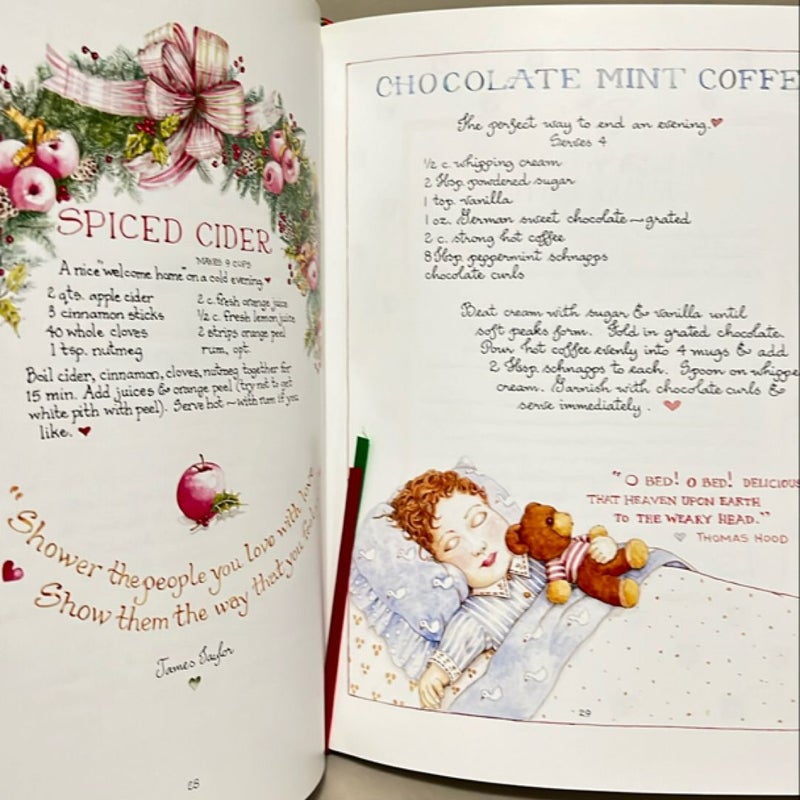 SPICED CIDER
MAKES 9 CUPS
A nice "welcome home" on a cold evening.
2 qts. apple cider
3 cinnamon sticks
40 whole cloves
1 tsp. nutmeg
2 c. fresh orange juice
1/2 c. fresh lemon juice
2 strips orange peel
rum, opt.
Boil cider, cinnamon, cloves, nutmeg together for
15 min. Add juices & orange peel (try not to get
white pith with peel). Serve hot ~ with rum if you
like.
"Shower the people you love with love
Show them the way that you feel
James Taylor
28
CHOCOLATE MINT COFFE
The perfect way to end an evening.
Serves 4
1/2 c. whipping cream
2 Tbsp. powdered sugar
1 tsp. vanilla
1 oz. German sweet chocolate ~ grated
2 c. strong hot coffee
8 Tbsp. peppermint schnapps
chocolate curls
Beat cream with sugar & vanilla until
soft peaks form. Fold in grated chocolate.
Pour hot coffee evenly into 4 mugs & add
2 Tbsp. schnapps to each. Spoon on whippe
cream. Garnish with chocolate curls &
serve immediately.
"O BED! O BED! DELICIOUS
THAT HEAVEN UPON EARTH
TO THE WEARY HEAD."
THOMAS HOOD
29